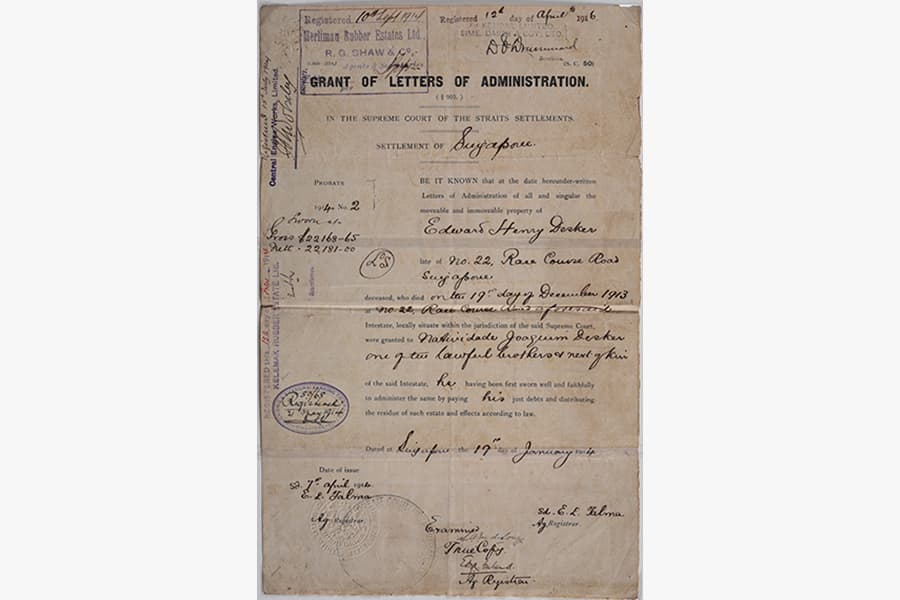 Registered 10th Sept 1914
Merliman Rubber Estates Ltd.
R. G. SHAW & CO.
Agents &
Registered 12th day of April 1916.
SIME, DARBY & COY, LTD.
D Drummond
(S. C. 50)
GRANT OF LETTERS OF ADMINISTRATION.
IN THE SUPREME COURT OF THE STRAITS SETTLEMENTS.
SETTLEMENT OF Singapore.
Central Engine Works, Limited.
PROBATE
1914. No. 2
Sworn at
Gross $22168-65
Nett - 22181-00
BE IT KNOWN that at the date hereunder-written
Letters of Administration of all and singular the
moveable and immoveable property of
Edward Henry Desker
LS
late of No. 22, Race Course Road
Singapore
deceased, who died on the 19th day of December 1913
at No. 22, Race Course Road aforesaid
Intestate, locally situate within the jurisdiction of the said Supreme Court,
were granted to Natividade Joaquim Desker
one of the lawful brothers & next of kin
of the said Intestate, he having been first sworn well and faithfully
to administer the same by paying his just debts and distributing
the residue of such estate and effects according to law.
REGISTERED this 12th day of
KELEMAK RUBBER ESTATE Ltd.
Secretaries.
55/65
Registered
21 May 1914
Dated at Singapore the 19th day of January 1914
Date of issue
sd. 7th April 1914
E. L. Talma
Ag Registrar.
sd. E. L. Talma
Ag Registrar.
Examined
True Copy.
Ag Registrar.